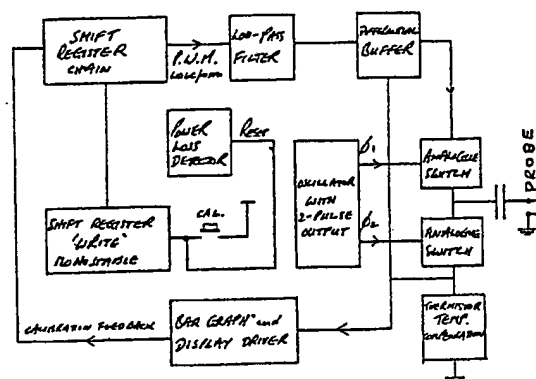 SHIFT
REGISTER
CHAIN
P.W.M.
WAVEFORM
LOW-PASS
FILTER
DIFFERENTIAL
BUFFER
POWER
LOSS
DETECTOR
RESET
OSCILLATOR
WITH
2-PULSE
OUTPUT
Ø1
Ø2
ANALOGUE
SWITCH
ANALOGUE
SWITCH
PROBE
SHIFT REGISTER
'WRITE'
MONOSTABLE
CAL.
CALIBRATION FEEDBACK
BAR GRAPH and
DISPLAY DRIVER
THERMISTOR
TEMP.
COMPENSATION